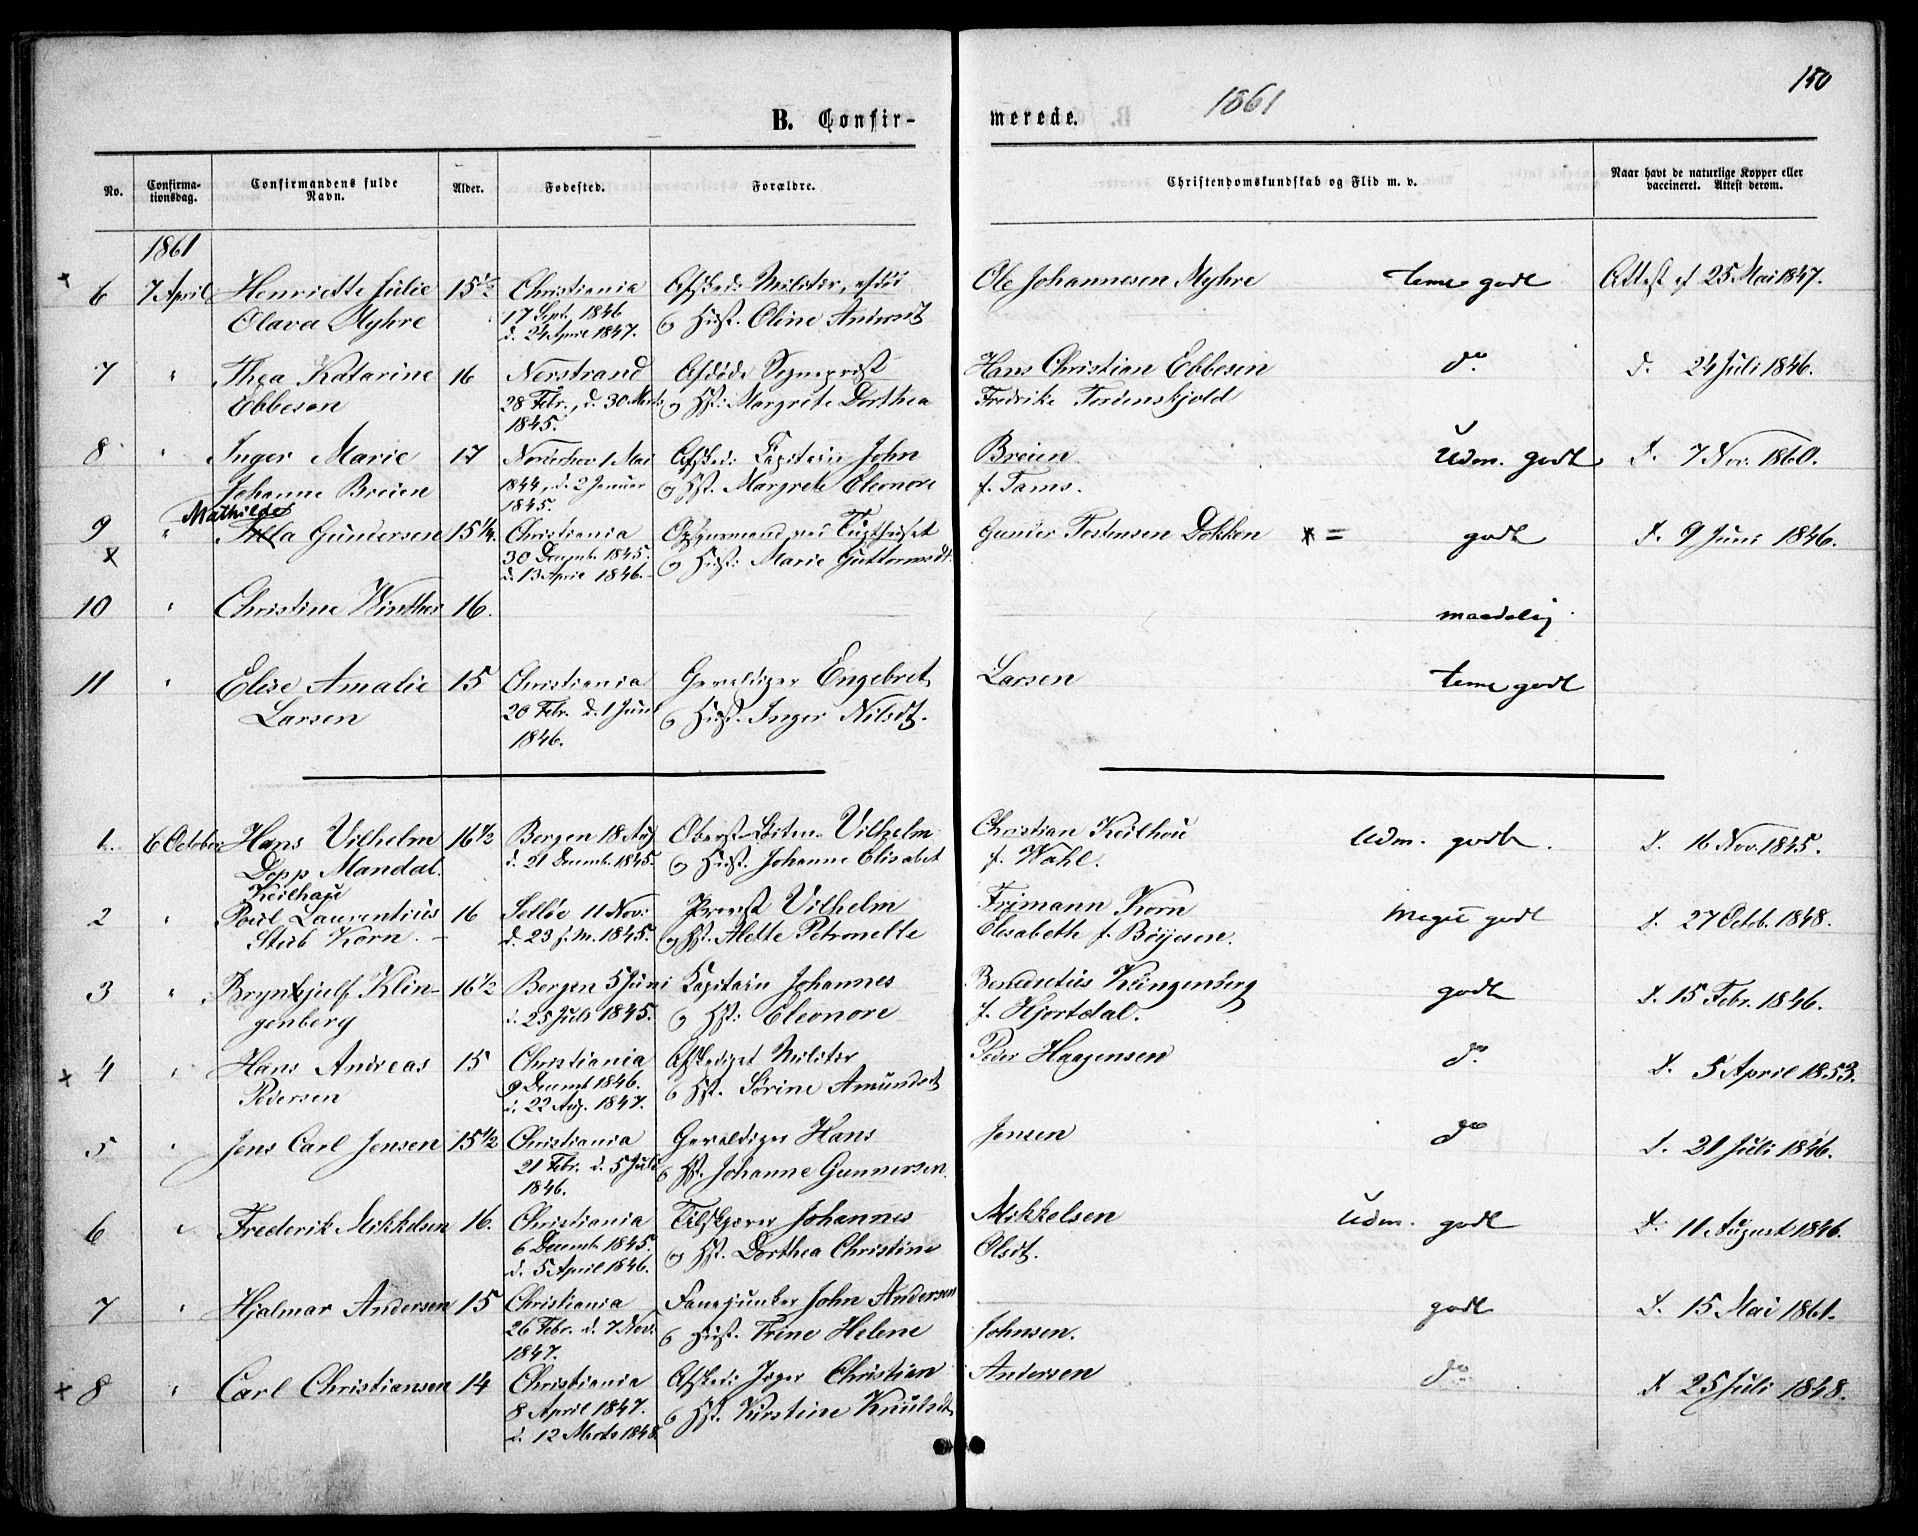 150
B. Confir-
merede.
1861
No.
Confirma-
tionsdag.
Confirmandens fulde
Navn.
Alder.
Fødested.
Forældre.
Christendomskundskab og Flid m. v.
Naar havt de naturlige Kopper eller
vaccineret. Attest derom.
1861
6 7 April Henriette Julie 15½ Christiania Afsked: Militær, afdød Ole Johannesen Myhre temg godt Attest af 25 Mai 1847.
Olava Myhre 17 Sept. 1846 og Hust. Oline Andersdt
d. 24 April 1847.
7 " Thea Katarine 16 Nerstrand Afdøde Sognepræst Hans Christian Ebbesen do d. 24 Juli 1846.
Ebbesen 28 Febr., d. 30 Marts og Hst: Margrete Dorthea Fredrike Tordenskjold
1845.
8 " Inger Marie 17 Norderhov 1 Mai Afsked: Capitain John Breien Udm. godt d. 7 Nov. 1860.
Johanne Breien 1844, d. 2 Januar og Hst. Margrete Eleonore f. Tams.
1845.
Mathilde
9 " Gundersen 15¼ Christiania Opsynsmand ved Tugthuset Gunder Dokken * = godt d. 9 Juni 1846.
x 30 Decemb. 1845. og Hust: Marie Guttormsdt.
d. 13 April 1846.
10 " Christine Winther 16. maadelig.
11 " Elise Amalie 15 Christiania Gevaldiger Engebret Larsen temg godt
Larsen 20 Febr. d. 1 Juni og Hust. Inger Nilsdt.
1846.
1. 6 October Hans Vilhelm 16½ Bergen 18 Aug Oberst-Lôitn. Vilhelm Christian Keilhau Udm. godt. d. 16 Nov. 1845.
Dopp Mandal. d. 21 Decemb. 1845. og Hust. Johanne Elisabet f. Wahl.
Keilhau
2 " Poul Laurentius 16 Selløe 11 Nov: Præst Vilhelm Frimann Korn Meget godt d. 27 Octob. 1848.
Stub Korn. d. 23 s. M. 1845. og Hst. Mette Petronelle Elisabeth f. Börjesen.
3 " Brynjulf Klin- 16½ Bergen 5 Juni Kapitain Johannes Benedictus Klingenberg godt d. 15 Febr. 1846.
genberg d. 25 Juli 1845. og Hst: Eleonore f. Hjortdal.
x 4 " Hans Andreas 15 Christiania Afskediget Militær Peder Haagensen do d. 5 April 1853.
Pedersen 9 Decemb 1846. og Hst. Sörine Amundsdt
d. 22 Aug. 1847.
5 " Jens Carl Jensen 15½ Christiania Gevaldiger Hans Jensen do d. 21 Juli 1846.
21 Febr. d. 5 Juli og Hst. Johanne Gunnersen.
1846.
6 " Frederik Mikkelsen 16. Christiania Johannes Mikkelsen Udm. godt d. 11 August 1846.
6 Decemb 1845. og Hst. Dorthea Christine Olsdt.
d. 5 April 1846.
7 " Hjalmar Andersen 15 Christiania Fanejunker John Andersen godt d. 15 Mai 1861.
26 Febr. d. 7 Nov. og Hust. Trine Helene Johnsen.
1847.
x 8 " Carl Christiansen 14 Christiania Afsked: Jæger Christian Andersen do d. 25 Juli 1848.
8 April 1847. og Hst. Kirstine Knudsdt.
d. 12 Marts 1848.